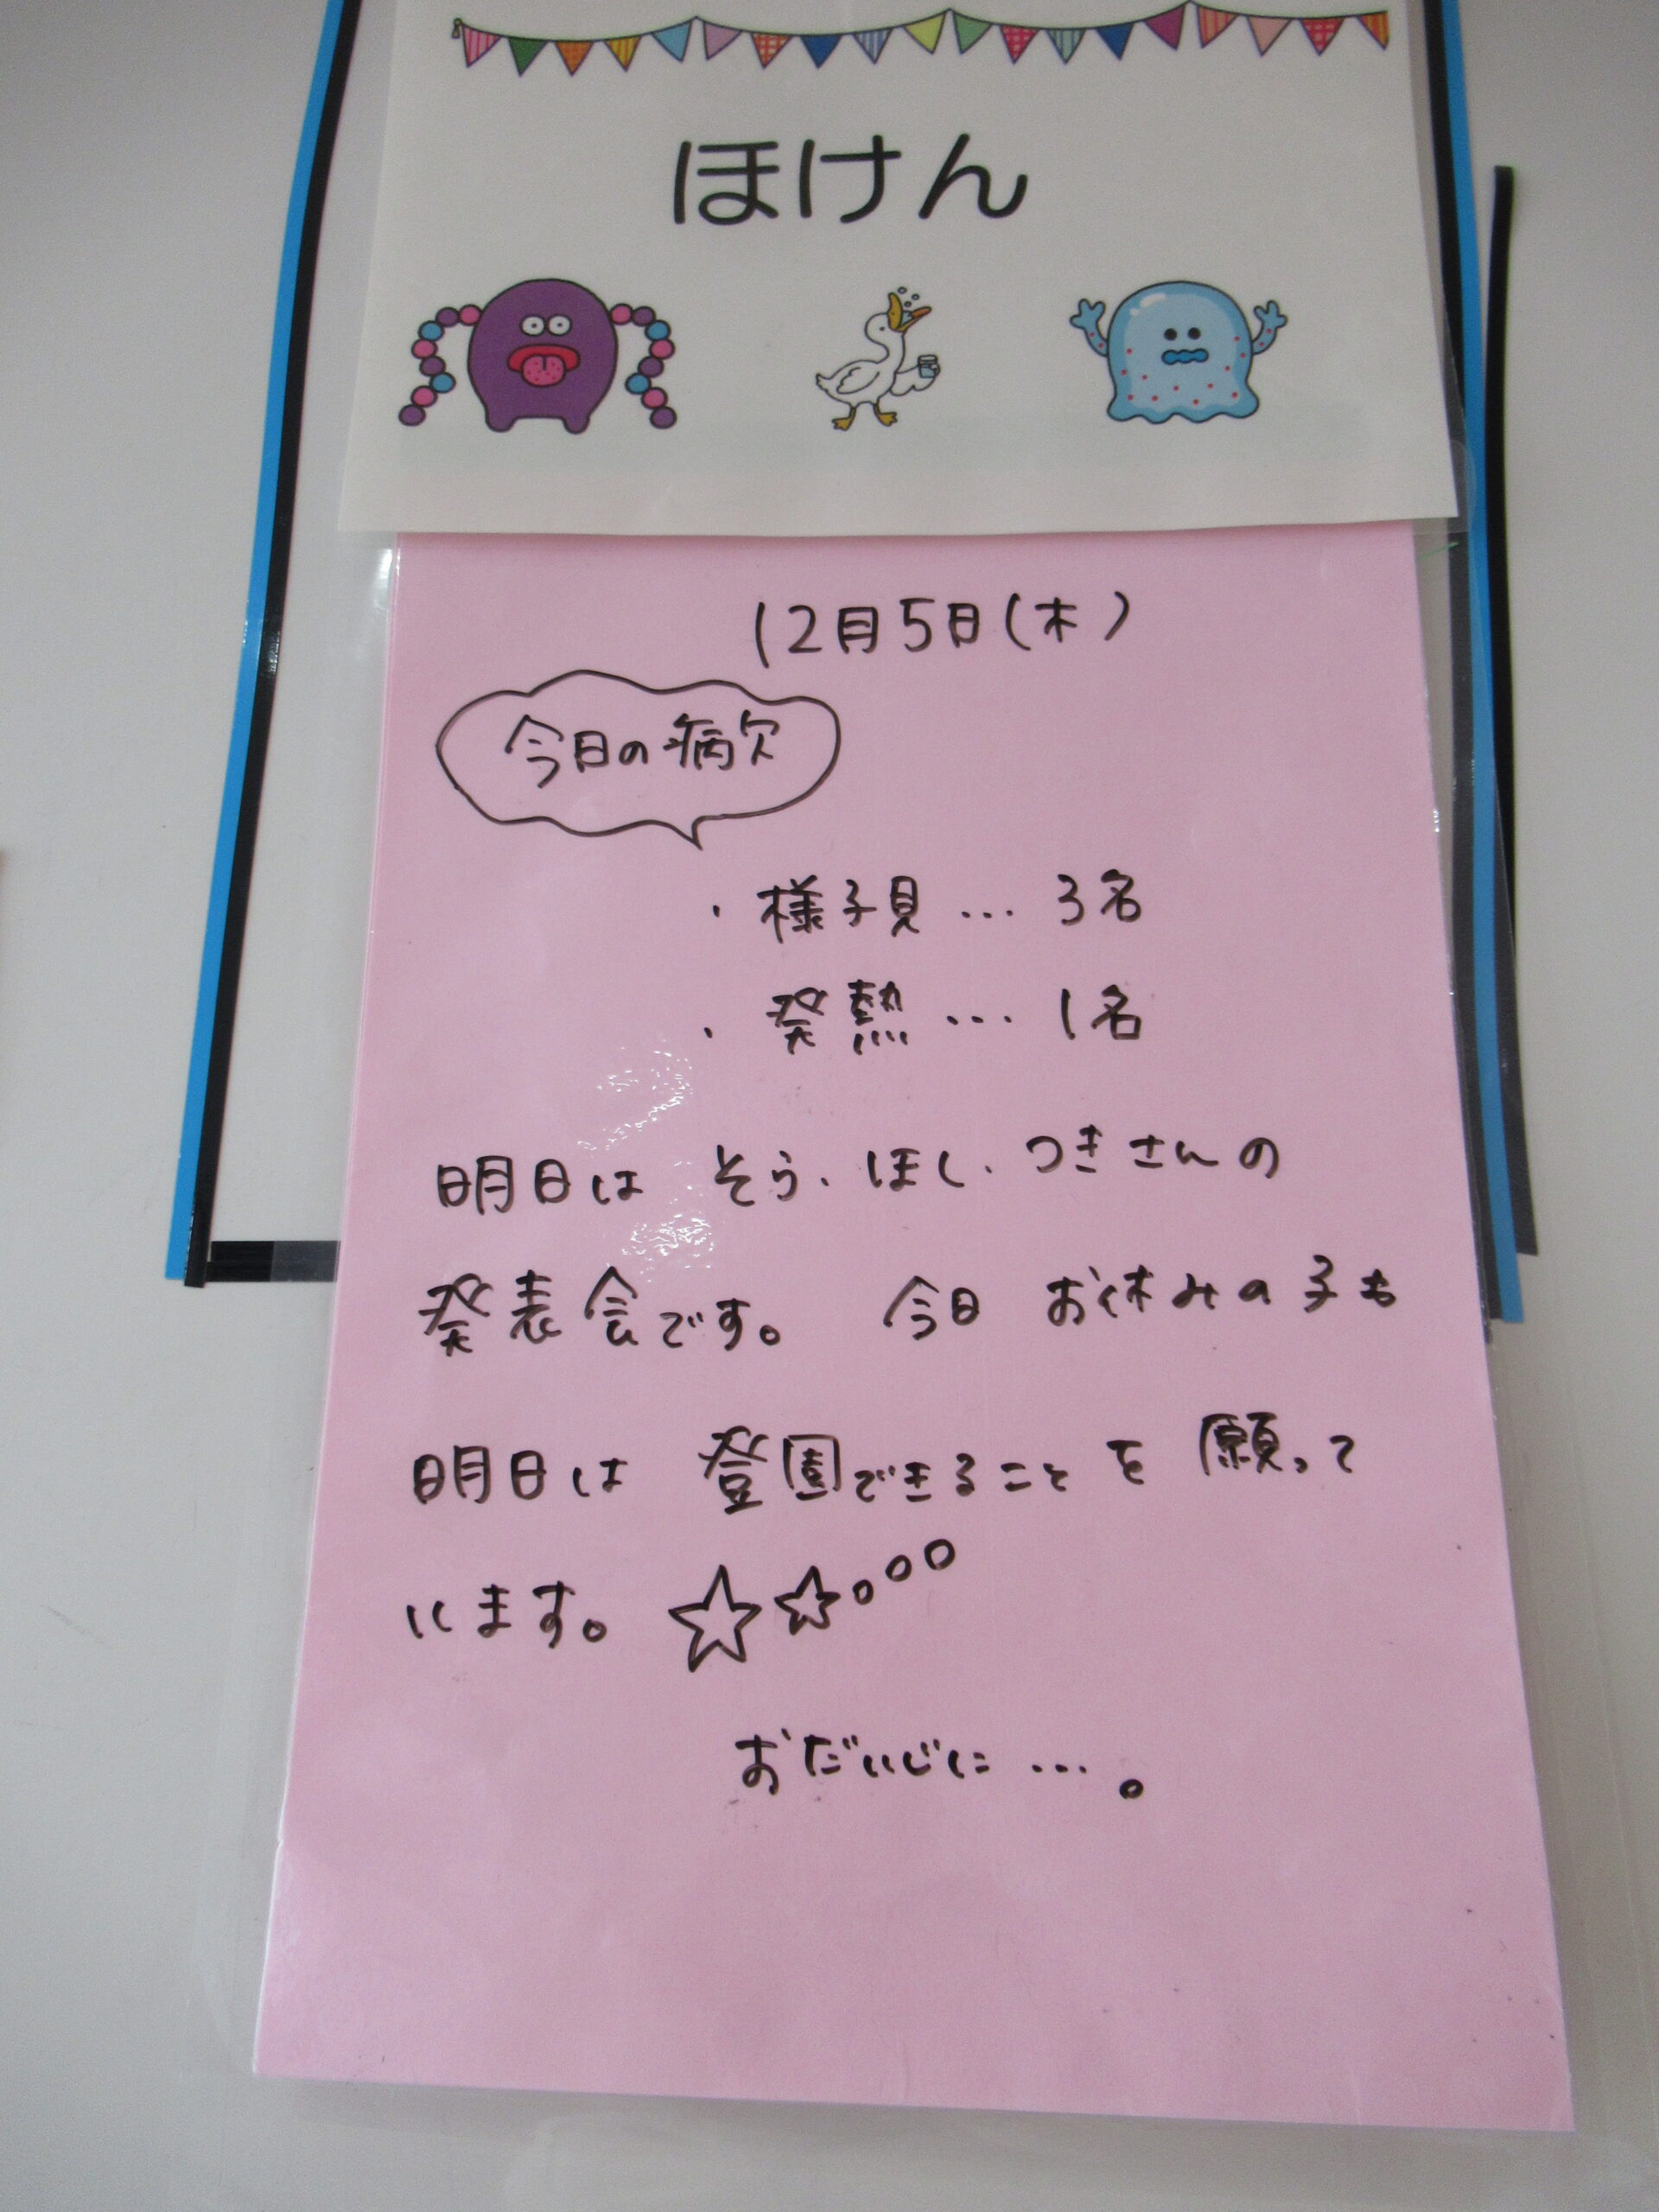 ほけん
12月5日(木)
今日の病欠
・様子見…3名
・発熱…1名
明日は そら、ほし、つきさんの
発表会です。 今日 お休みの子も
明日は 登園できることを 願って
います。☆☆。○○
おだいじに…。